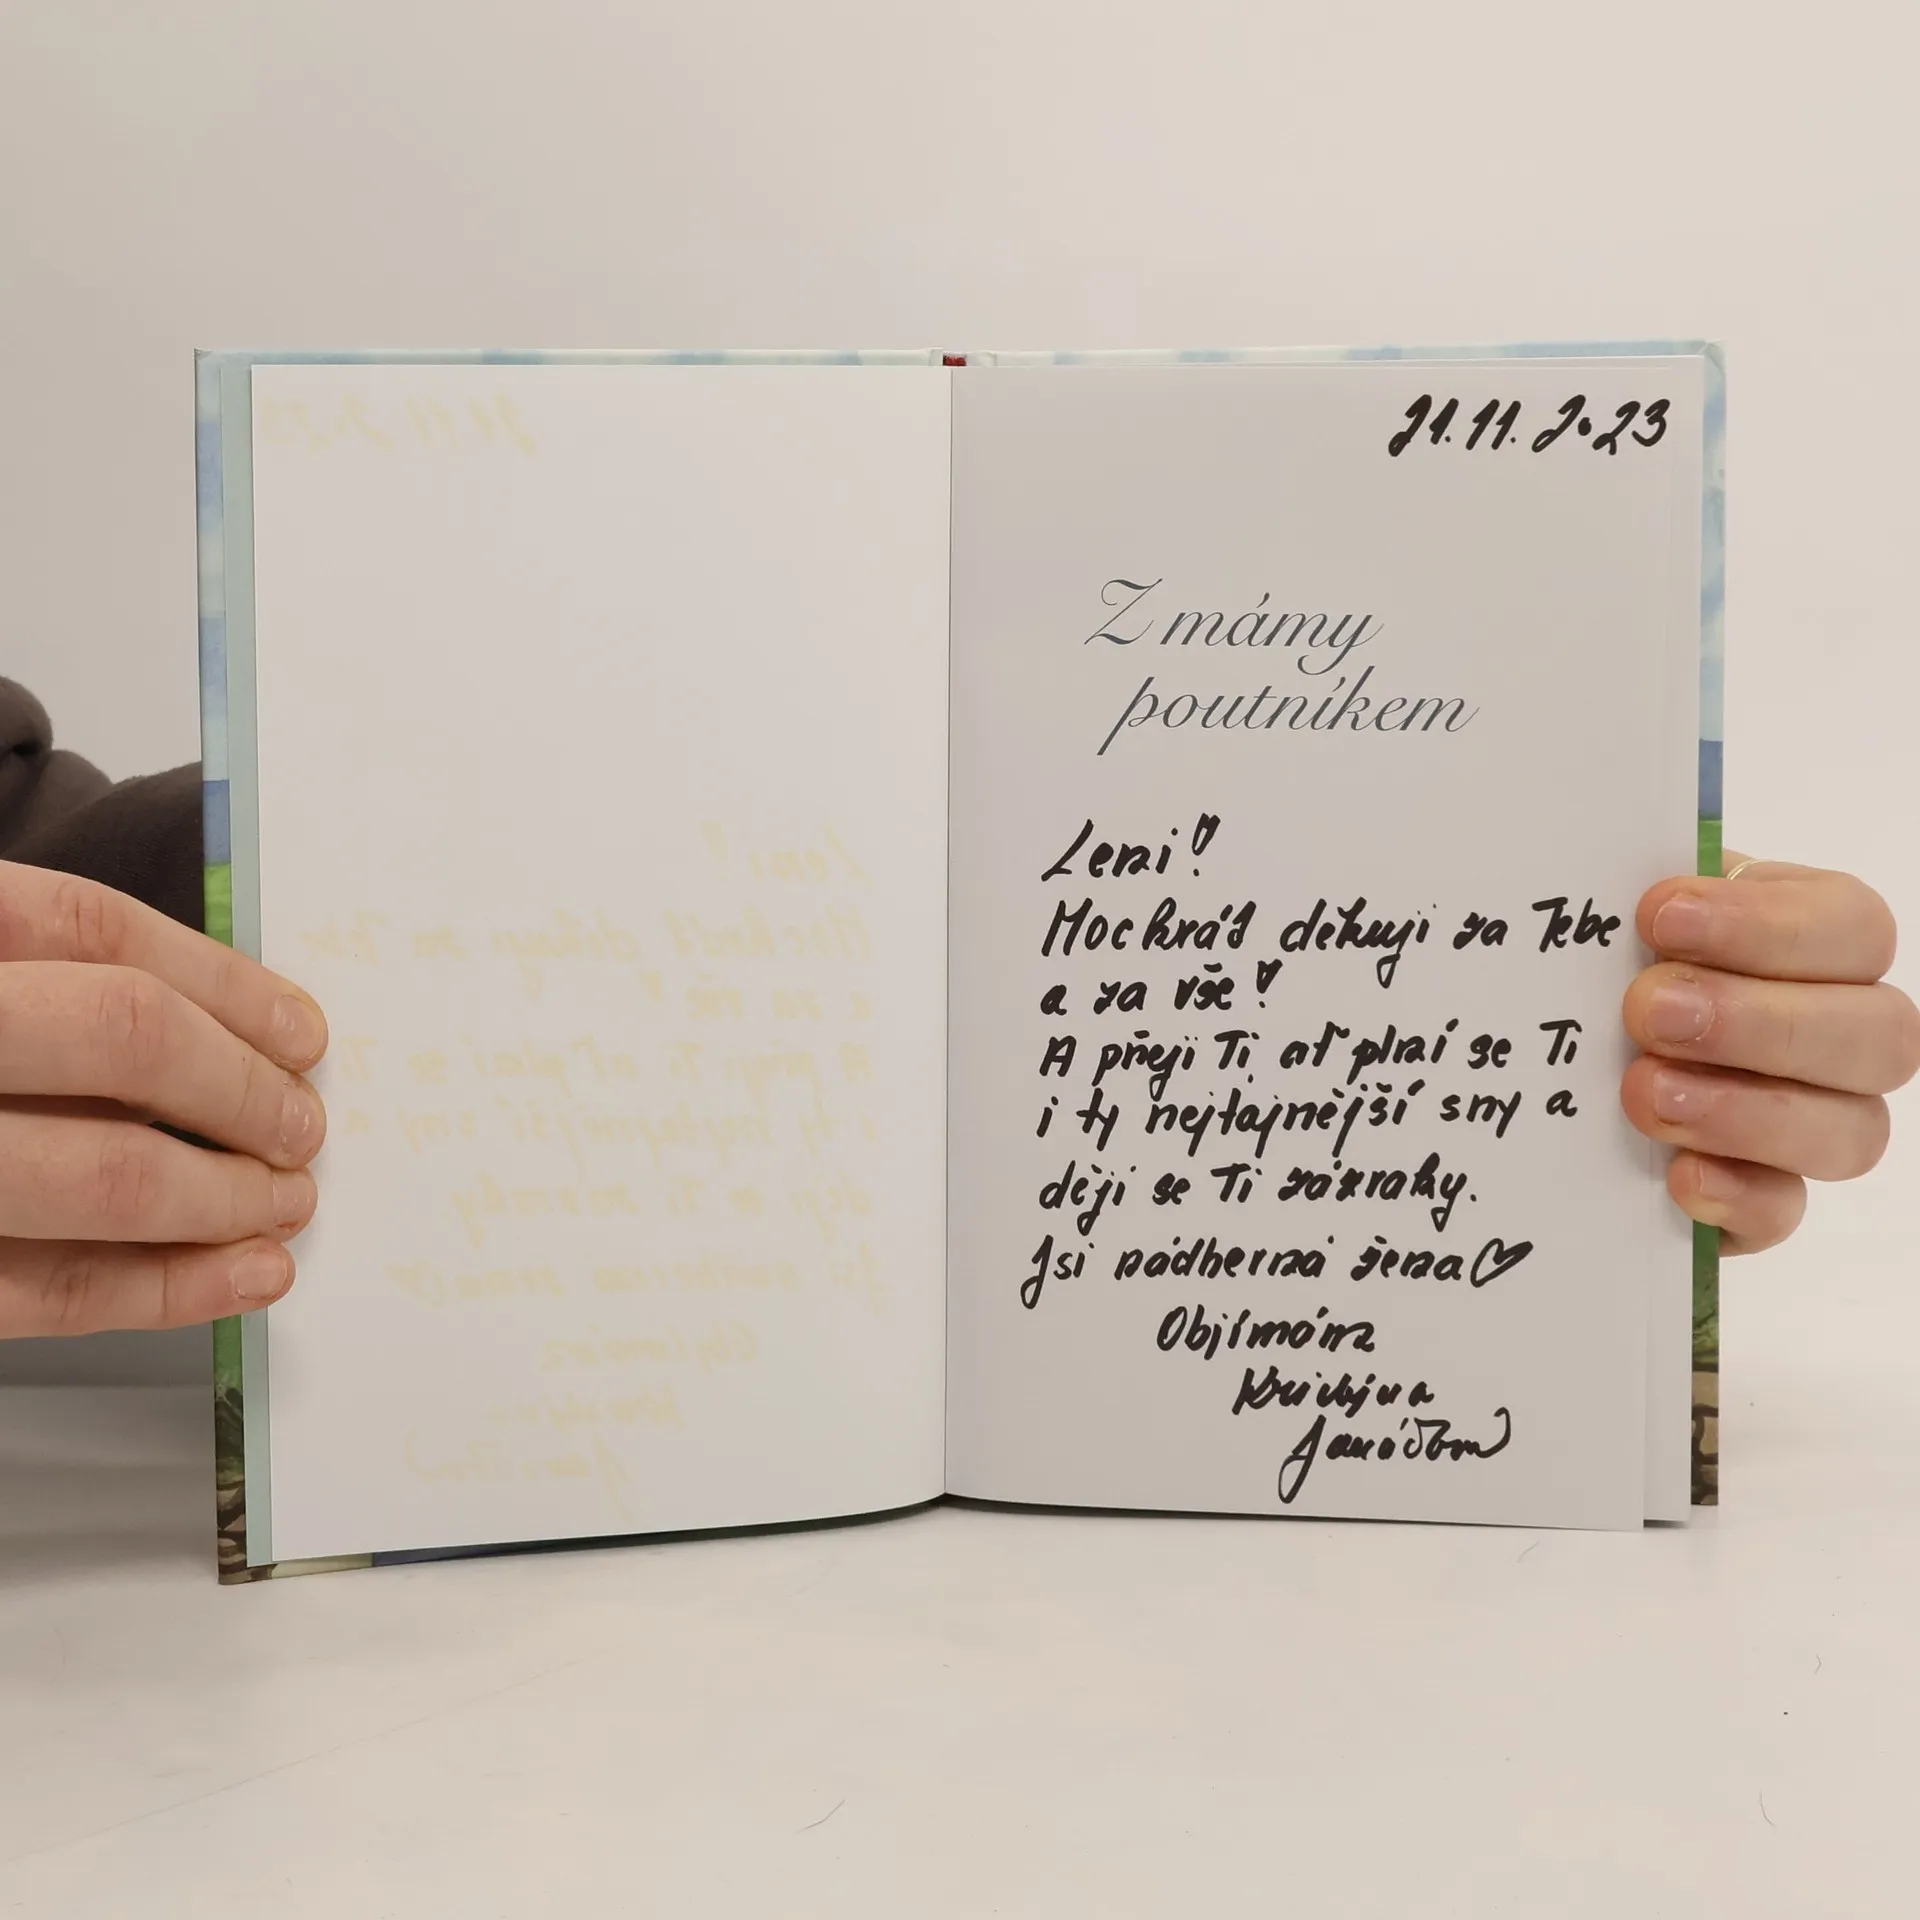 21.11.2023
Z mámy
poutníkem
Leni!
Mockrát děkuji za Tebe
a za vše!
A přeji Ti ať plní se Ti
i ty nejtajnější sny a
ději se Ti zázraky.
Jsi nádherná žena♡
Objímám
Kristýna